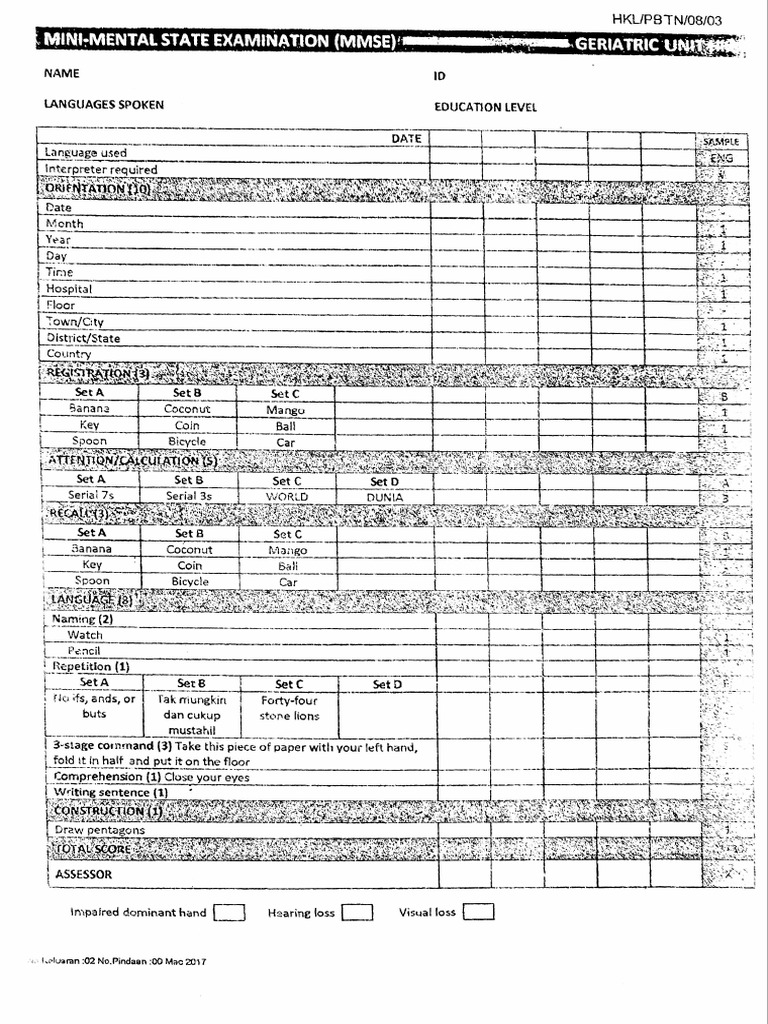 HKL/PBTN/08/03
MINI-MENTAL STATE EXAMINATION (MMSE) GERIATRIC UNIT
NAME ID
LANGUAGES SPOKEN EDUCATION LEVEL
DATE SAMPLE
Language used ENG
Interpreter required
ORIENTATION (10)
Date
Month 1
Year 1
Day
Time 1
Hospital 1
Floor
Town/City 1
District/State 1
Country 1
REGISTRATION (3)
Set A Set B Set C B
Banana Coconut Mango 1
Key Coin Ball 1
Spoon Bicycle Car
ATTENTION/CALCULATION (5)
Set A Set B Set C Set D A
Serial 7s Serial 3s WORLD DUNIA 3
RECALL (3)
Set A Set B Set C B
Banana Coconut Mango
Key Coin Ball
Spoon Bicycle Car
LANGUAGE (8)
Naming (2)
Watch 1
Pencil 1
Repetition (1)
Set A Set B Set C Set D
No ifs, ands, or Tak mungkin Forty-four
buts dan cukup stone lions
mustahil
3-stage command (3) Take this piece of paper with your left hand,
fold it in half and put it on the floor
Comprehension (1) Close your eyes
Writing sentence (1)
CONSTRUCTION (1)
Draw pentagons 1
TOTAL SCORE
ASSESSOR
Impaired dominant hand Hearing loss Visual loss
Keluaran :02 No.Pindaan :00 Mac 2017